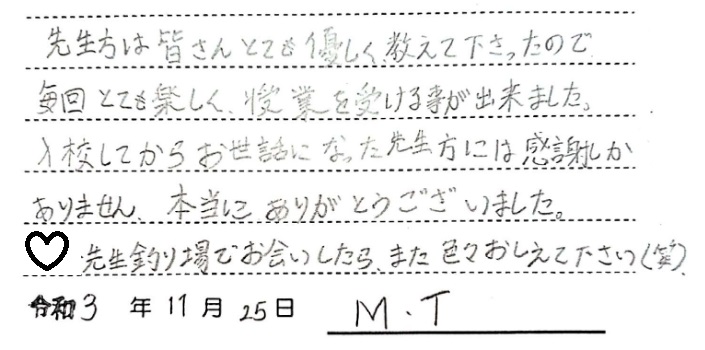 先生方は皆さんとても優しく教えて下さったので
毎回とても楽しく、授業を受ける事が出来ました。
入校してからお世話になった先生方には感謝しか
ありません、本当にありがとうございました。
♡ 先生釣り場でお会いしたら、また色々おしえて下さいっ(笑)
令和3年11月25日 M.T